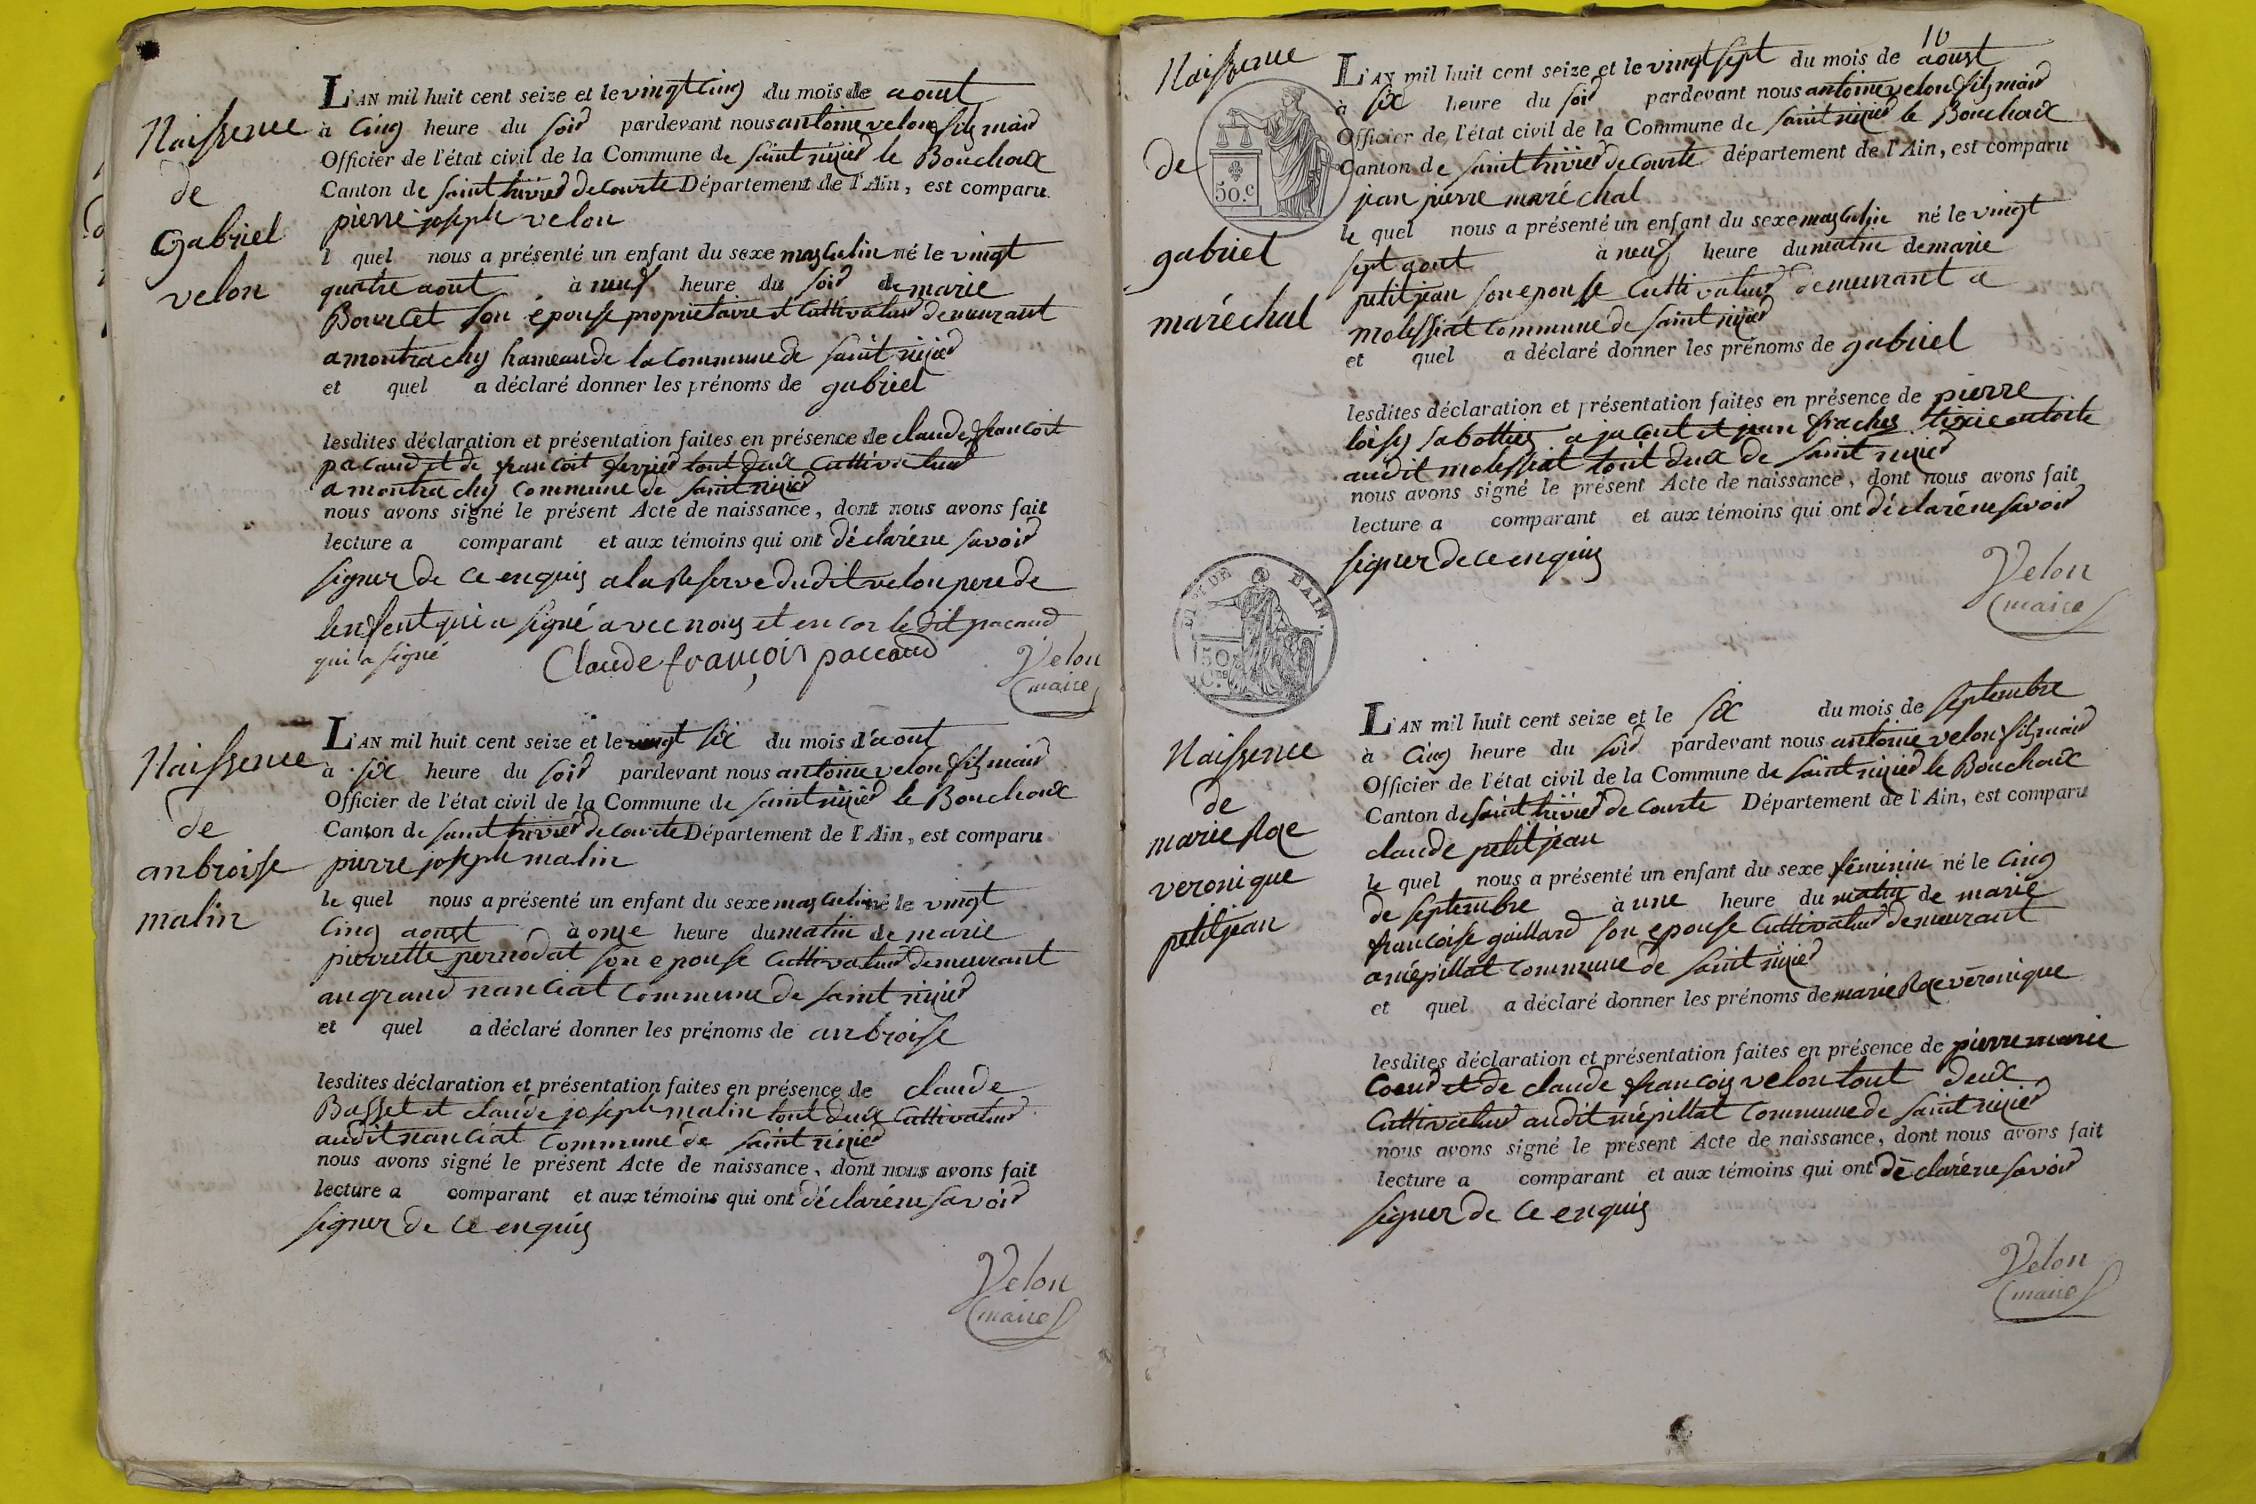 Naissence
de
Gabriel
velon
L'AN mil huit cent seize et le vingt cinq du mois de aoust
à cinq heure du soir pardevant nous antoine velon fils mair
Officier de l'état civil de la Commune de saint nizier le Bouchoux
Canton de saint trivier de courte Département de l'Ain, est comparu
pierre joseph velon
l quel nous a présenté un enfant du sexe masculin né le vingt
quatre aout à neuf heure du soir de marie
Bourcet son epouse proprietaire et cultivateur demeurant
a montrachy hameau de la commune de saint nizier
et quel a déclaré donner les prénoms de gabriel
lesdites déclaration et présentation faites en présence de claude francoit
pacaud et de francoit ferrier tout deux cultivateur
a montrachy commune de saint nizier
nous avons signé le présent Acte de naissance, dont nous avons fait
lecture a comparant et aux témoins qui ont déclaré ne savoir
signer de ce enquis a la reserve dudit velon pere de
lenfent qui a signé avec nous et encor le dit pacaud
qui a signé Claude françois paccaud Velon
maire
Naissence
de
anbroisse
malin
L'AN mil huit cent seize et le vingt six du mois d'aout
à six heure du soir pardevant nous antoine velon fils mair
Officier de l'état civil de la Commune de saint nizier le Bouchoux
Canton de saint trivier de courte Département de l'Ain, est comparu
pierre joseph malin
le quel nous a présenté un enfant du sexe masculin né le vingt
cinq aoust à onze heure du matin de marie
pierrette pernodat son epouse cultivateur demeurant
au grand nanciat commune de saint nizier
et quel a déclaré donner les prénoms de anbroise
lesdites déclaration et présentation faites en présence de claude
Basset et claude joseph malin tout deux cultivateur
audit nanciat commune de saint nizier
nous avons signé le présent Acte de naissance, dont nous avons fait
lecture a comparant et aux témoins qui ont déclaré ne savoir
signer de ce enquis
Velon
maire
10
Naissence
de
gabriel
maréchal
50.c
L'AN mil huit cent seize et le vingt sept du mois de aoust
à six heure du soir pardevant nous antoine velon fils mair
Officier de l'état civil de la Commune de saint nizier le Bouchoux
Canton de saint trivier de courte département de l'Ain, est comparu
jean pierre maréchal
le quel nous a présenté un enfant du sexe masculin né le vingt
sept aout à neuf heure du matin de marie
petitjean son epouse cultivateur demeurant a
molissiat commune de saint nizier
et quel a déclaré donner les prénoms de gabriel
lesdites déclaration et présentation faites en présence de pierre
loisy sabottier a jacent et jean fraches
audit molissiat tout deux de saint nizier
nous avons signé le présent Acte de naissance, dont nous avons fait
lecture a comparant et aux témoins qui ont déclaré ne savoir
signer de ce enquis
Velon
maire
50
Naissence
de
marie Roze
veronique
petitjean
L'AN mil huit cent seize et le six du mois de septembre
à cinq heure du soir pardevant nous antoine velon fils mair
Officier de l'état civil de la Commune de saint nizier le Bouchoux
Canton de saint trivier de courte Département de l'Ain, est comparu
claude petitjean
le quel nous a présenté un enfant du sexe féminin né le cinq
de septembre à une heure du matin de marie
francoise gaillard son epouse cultivateur demeurant
a népillat commune de saint nizier
et quel a déclaré donner les prénoms de marie Roze véronique
lesdites déclaration et présentation faites en présence de pierre marie
coeur et de claude francois velon tout deux
cultivateur audit népillat commune de saint nizier
nous avons signé le présent Acte de naissance, dont nous avons fait
lecture a comparant et aux témoins qui ont déclaré ne savoir
signer de ce enquis
Velon
maire